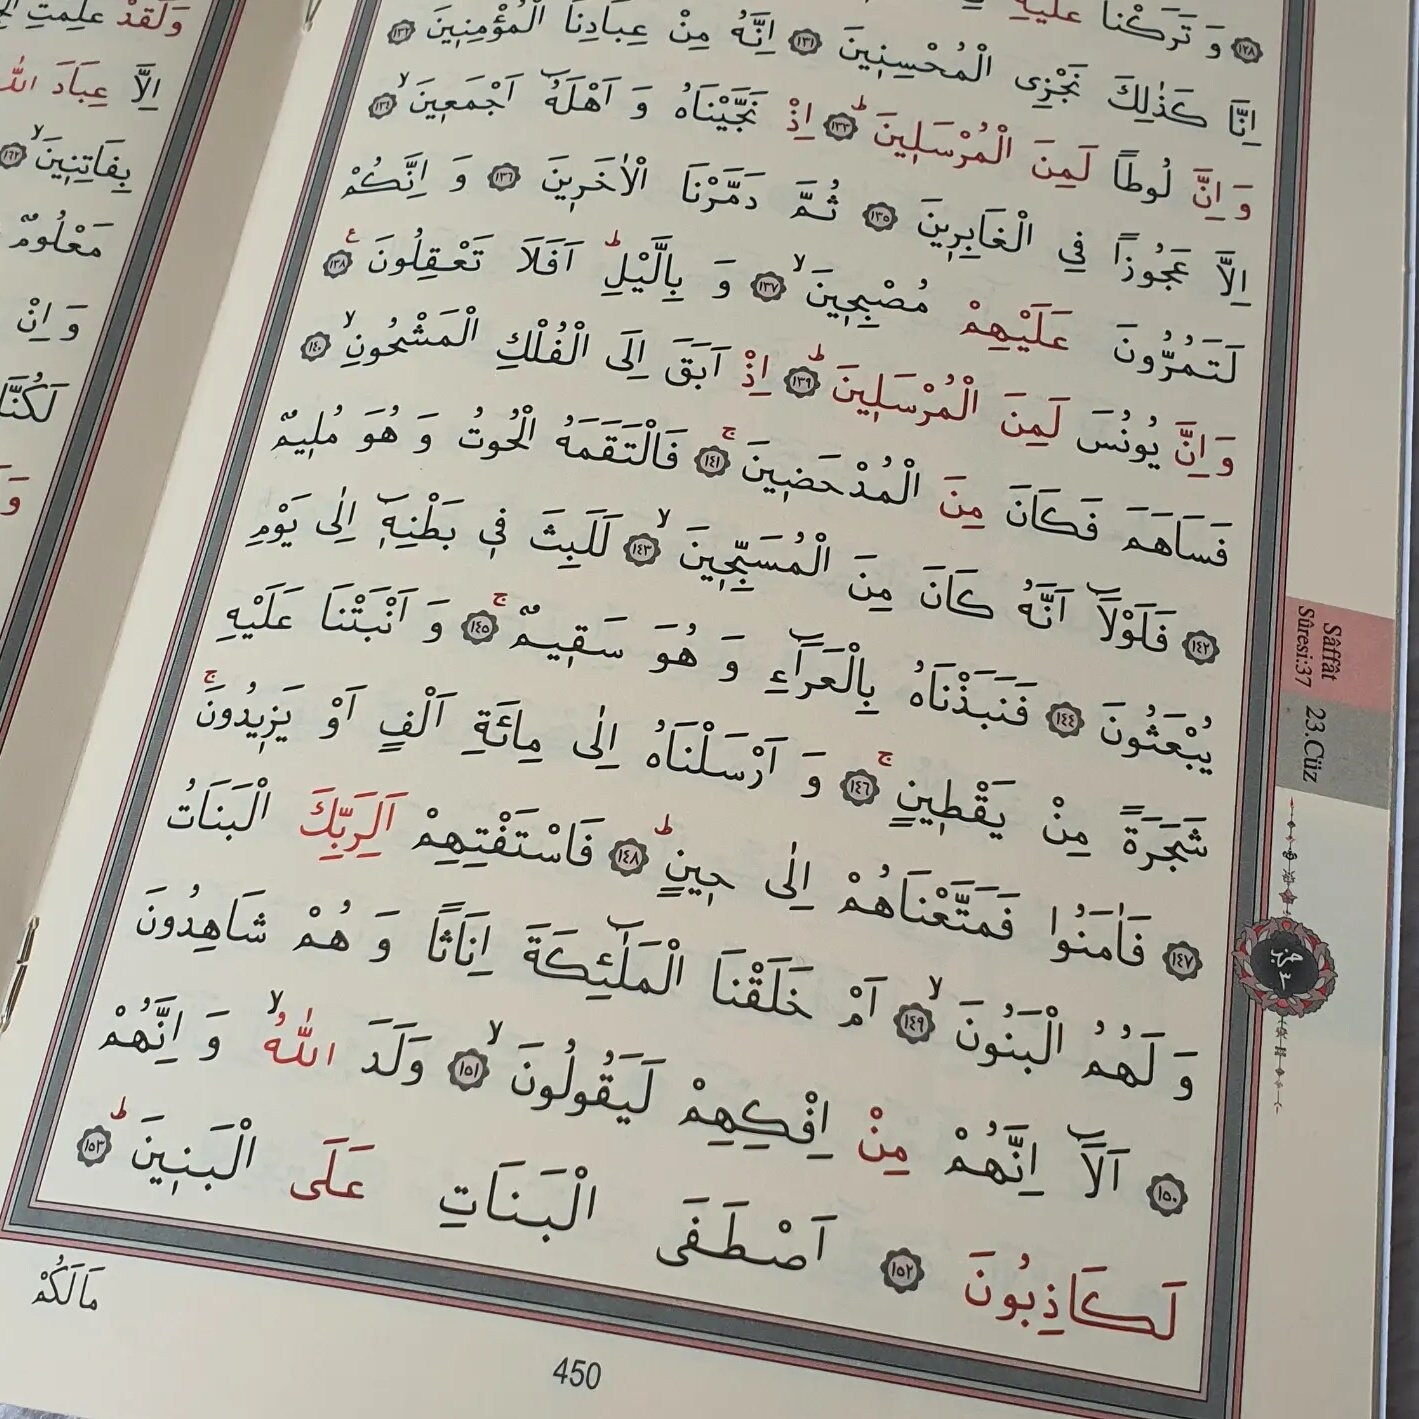 وَ تَرَكْنَا عَلَيْهِ
اِنَّا كَذٰلِكَ نَجْزِى الْمُحْسِنٖينَ ﴿١٣١﴾ اِنَّهُ مِنْ عِبَادِنَا الْمُؤْمِنٖينَ ﴿١٣٢﴾
وَ اِنَّ لُوطًا لَمِنَ الْمُرْسَلٖينَ ﴿١٣٣﴾ اِذْ نَجَّيْنَاهُ وَ اَهْلَهُ اَجْمَعٖينَ ﴿١٣٤﴾
اِلَّا عَجُوزًا فِي الْغَابِرٖينَ ﴿١٣٥﴾ ثُمَّ دَمَّرْنَا الْاٰخَرٖينَ ﴿١٣٦﴾ وَ اِنَّكُمْ
لَتَمُرُّونَ عَلَيْهِمْ مُصْبِحٖينَ ﴿١٣٧﴾ وَ بِالَّيْلِ اَفَلَا تَعْقِلُونَ ﴿١٣٨﴾
وَ اِنَّ يُونُسَ لَمِنَ الْمُرْسَلٖينَ ﴿١٣٩﴾ اِذْ اَبَقَ اِلَى الْفُلْكِ الْمَشْحُونِ ﴿١٤٠﴾
فَسَاهَمَ فَكَانَ مِنَ الْمُدْحَضٖينَ ﴿١٤١﴾ فَالْتَقَمَهُ الْحُوتُ وَ هُوَ مُلٖيمٌ
﴿١٤٢﴾ فَلَوْلَا اَنَّهُ كَانَ مِنَ الْمُسَبِّحٖينَ ﴿١٤٣﴾ لَلَبِثَ فٖى بَطْنِهٖ اِلٰى يَوْمِ
يُبْعَثُونَ ﴿١٤٤﴾ فَنَبَذْنَاهُ بِالْعَرَاءِ وَ هُوَ سَقٖيمٌ ﴿١٤٥﴾ وَ اَنْبَتْنَا عَلَيْهِ
شَجَرَةً مِنْ يَقْطٖينٍ ﴿١٤٦﴾ وَ اَرْسَلْنَاهُ اِلٰى مِائَةِ اَلْفٍ اَوْ يَزٖيدُونَ
﴿١٤٧﴾ فَاٰمَنُوا فَمَتَّعْنَاهُمْ اِلٰى حٖينٍ ﴿١٤٨﴾ فَاسْتَفْتِهِمْ اَلِرَبِّكَ الْبَنَاتُ
وَ لَهُمُ الْبَنُونَ ﴿١٤٩﴾ اَمْ خَلَقْنَا الْمَلٰئِكَةَ اِنَاثًا وَ هُمْ شَاهِدُونَ
﴿١٥٠﴾ اَلَا اِنَّهُمْ مِنْ اِفْكِهِمْ لَيَقُولُونَ ﴿١٥١﴾ وَلَدَ اللّٰهُ وَ اِنَّهُمْ
لَكَاذِبُونَ ﴿١٥٢﴾ اَصْطَفَى الْبَنَاتِ عَلَى الْبَنٖينَ ﴿١٥٣﴾
مَالَكُمْ
450
Sâffât
Sûresi:37
23.Cüz
حزب
٣
وَلَقَدْ عَلِمَتِ
اِلَّا عِبَادَ
بِفَاتِنٖينَ ﴿١٦٢﴾
مَعْلُومٌ
وَ اِنْ
لَكُنَّا